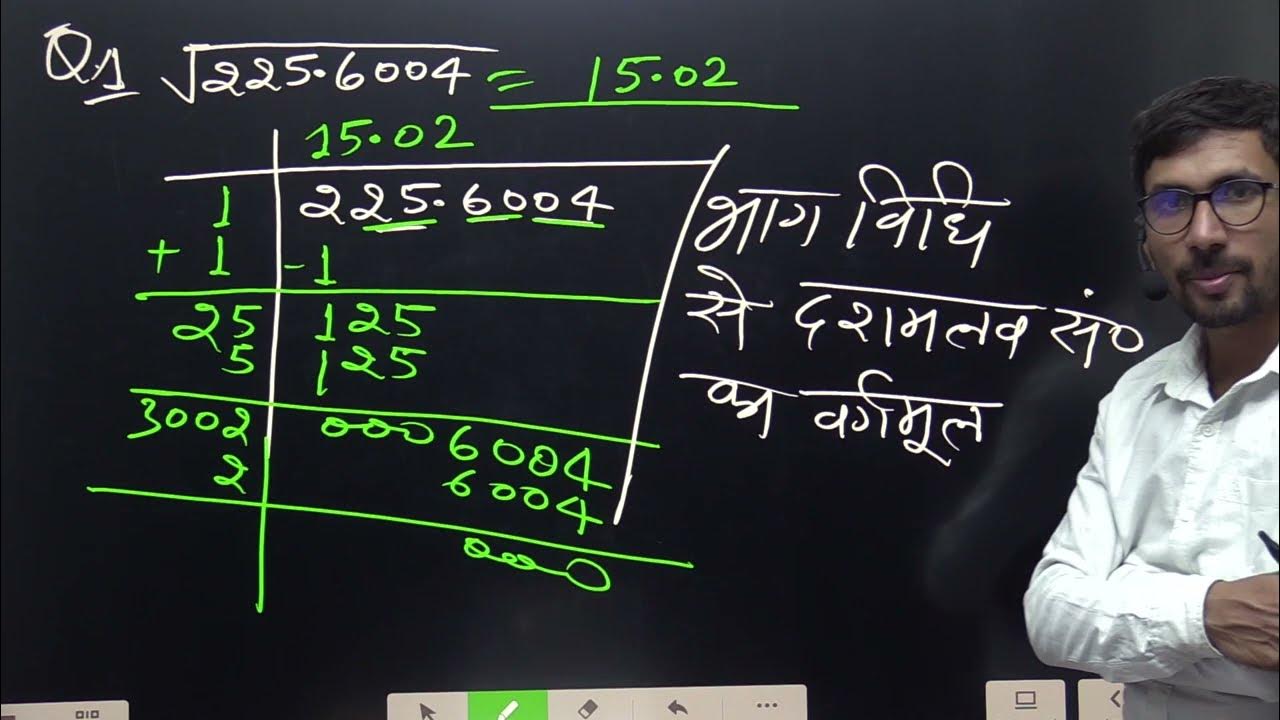 Q.1 √225.6004 = 15.02
15.02
1 225.6004
+ 1 - 1
25 125
5 125
3002 0006004
2 6004
0000
भाग विधि
से दशमलव सं०
का वर्गमूल